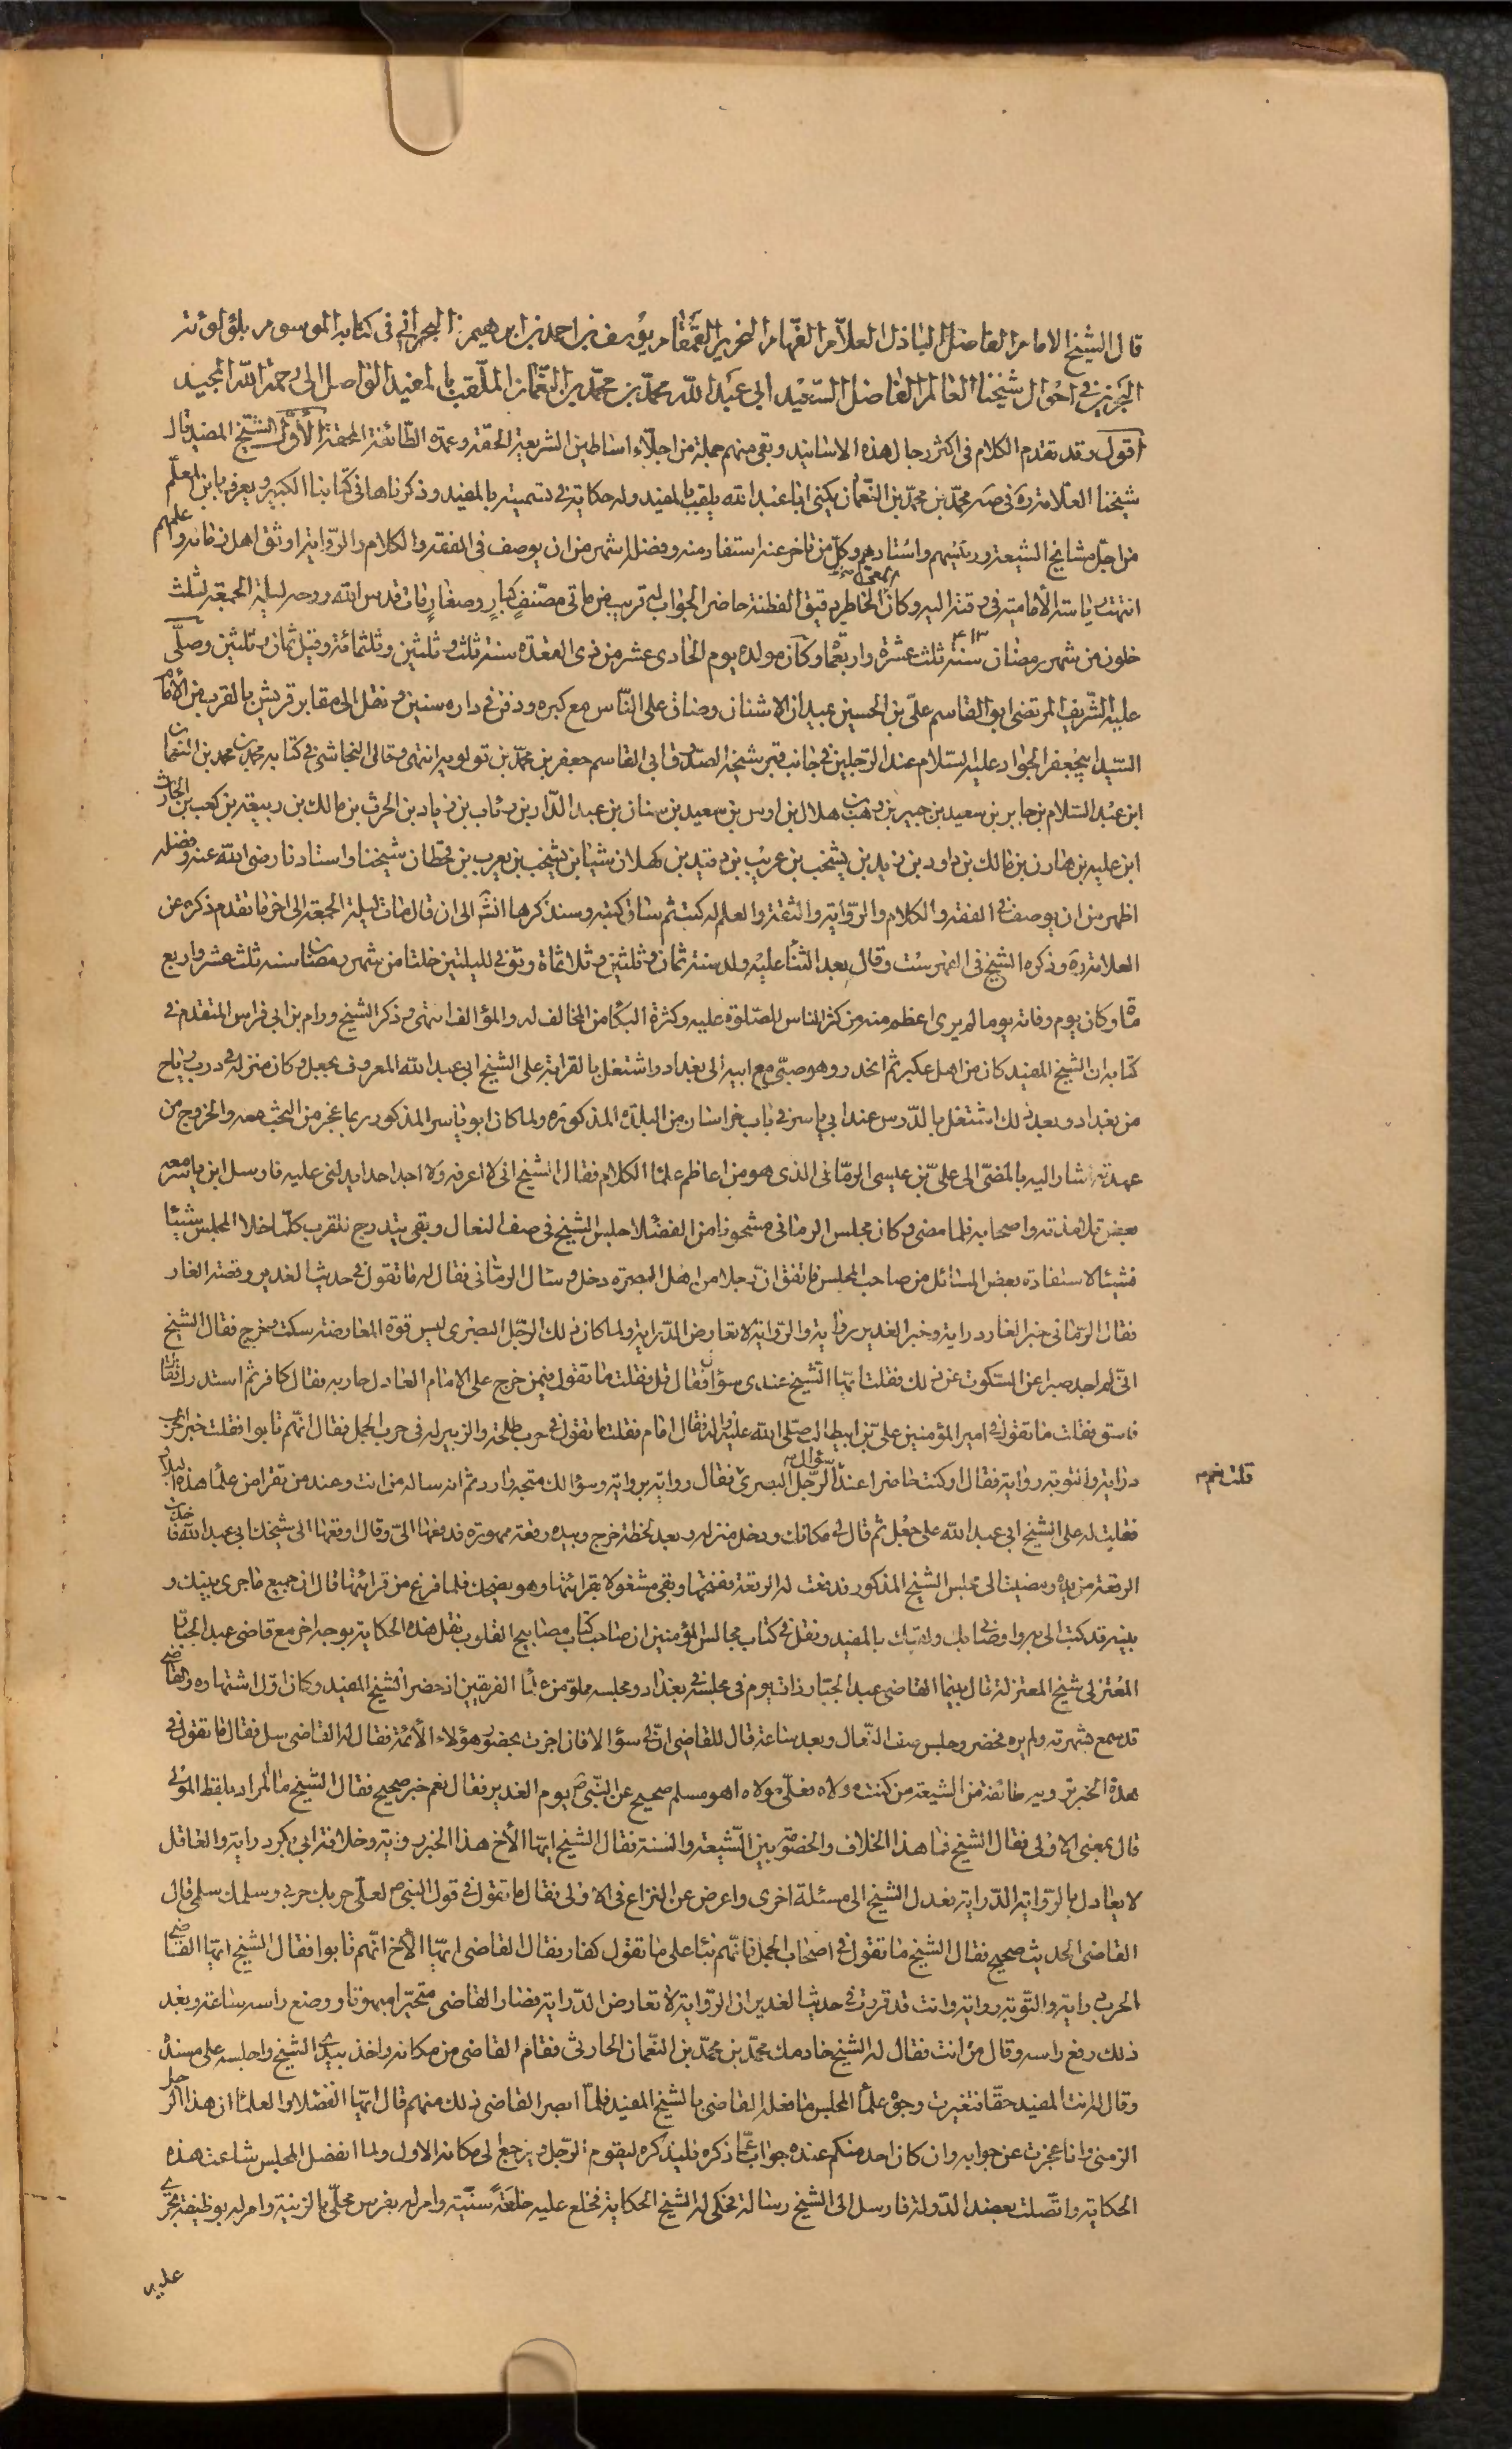 قال الشيخ الامام الفاضل الباذل العلام الفهام النحرير القمقام يوسف بن احمد بن ابرهيم البحراني في كتابه الموسوم بلؤلؤته
البحرين في احوال شيخنا العالم الفاضل السعيد ابي عبد الله محمد بن محمد بن النعمان الملقب بالمفيد الواصل الى رحمة الله المجيد
اقول وقد تقدم الكلام في اكثر رجال هذه الاسانيد وبقي منهم جملة من اجلاء اساطين الشريعة الحقة وعمدة الطائفة المحقة الأول الشيخ المفيد قال
شيخنا العلامة ره في صه محمد بن محمد بن النعمان يكنى ابا عبد الله يلقب بالمفيد وله حكاية في تسميته بالمفيد وذكرناها في كتابنا الكبير ويعرف بابن المعلم
من اجل مشايخ الشيعة ورئيسهم واستادهم وكل من تاخر عنه استفاد منه وفضله اشهر من ان يوصف في الفقه والكلام والرواية اوثق اهل زمانه واعلمهم
انتهت رياسة الأمامية في وقته اليه وكان حسن الخاطر دقيق الفطنة حاضر الجواب له قريب من ماتي مصنف كبار وصغار مات قدس الله روحه ليلة الجمعة لثلث
خلون من شهر رمضان سنة ٤١٣ ثلث عشرة واربعمأ وكان مولده يوم الحادي عشر من ذي القعدة سنة ثلث وثلثين وثلثمائة وقيل ثمان وثلثين وصلى
عليه الشريف المرتضى ابو القاسم علي بن الحسين بميدان الاشنان وضاق على الناس مع كبره ودفن في داره سنين ونقل الى مقابر قريش بالقرب من الأمام
السيد ابيجعفر الجواد عليه السلام عند الرجلين في جانب قبر شيخه الصدوق ابي القاسم جعفر بن محمد بن قولويه انتهى وقال النجاشي في كتابه محمد بن محمد بن النعمان
ابن عبد السلام بن جابر بن سعيد بن جبير بن وهب بن هلال بن اوس بن سعيد بن سنان بن عبد الدار بن رئاب بن زياد بن الحرث بن مالك بن ربيعة بن كعب بن الحارث
ابن عليه بن هارن بن مالك بن داود بن زيد بن يشخب بن عريب بن زيد بن كهلان شيبا بن يشخب بن يعرب بن قحطان شيخنا واستادنا رضي الله عنه وفضله
اظهر من ان يوصف في الفقه والكلام والرواية والثقة والعلم له كتب ثم ساق كتبه وسنذكرها انشه الى ان قال مات ليلة الجمعة الى اخر ما تقدم ذكره عن
العلامة ره وذكره الشيخ في الفهرست وقال بعد الثنأ عليه ولد سنة ثمان وثلثين وثلاثماة وتوفي لليلتين خلتا من شهر رمضان سنه ثلث عشر واربع
مأة وكان يوم وفاته يوما لم يرى اعظم منه من كثر الناس للصلوة عليه وكثرة البكأ من المخالف له والمؤالف انتهى وذكر الشيخ ورام بن ابي فراس المتقدم في
كتابه ان الشيخ المفيد كان من اهل عكبر ثم انحدر وهو صبي مع ابيه الى بغداد واشتغل بالقراءة على الشيخ ابي عبد الله المعروف بجعل وكان منزله في درب رياح
من بغداد وبعد ذلك اشتغل بالدرس عند ابي ياسر في باب خراسان من البلدة المذكورة ولما كان ابو ياسر المذكور ربما عجز من البحث معه والخروج من
عهدته اشار اليه بالمضي الى علي بن عيسى الرماني الذي هو من اعاظم علمأ الكلام فقال الشيخ اني لا اعرفه ولا اجد احدا يدلني عليه فارسل ابن ياسر معه
بعض تلامذته واصحابه فلما مضى وكان مجلس الرماني مشحونا من الفضلا جلس الشيخ في صف النعال وبقي يتدرج نتقرب كلما خلا المجلس شيئا
فشيئا لاستفادة بعض المسائل من صاحب المجلس فاتفق ان رجلا من اهل البصرة دخل وسئال الرماني فقال له ما تقول في حديث الغدير وقصة الغار
فقال الرماني خبر الغار دراية وخبر الغدير رواية والرواية لا تعارض الدراية ولما كان ذلك الرجل البصري ليس قوة المعارضة سكت وخرج فقال الشيخ
اني لم اجد صبرا عن السكوت عن ذلك فقلت ايها الشيخ عندي سؤال فقال قل فقلت ما تقول فيمن خرج على الامام العادل وحاربه فقال كافر ثم استدرك فقال
فاسق فقلت ما تقول في امير المؤمنين علي بن ابيطالب صلى الله عليه واله فقال امام فقلت ما تقول في حرب طلحة والزبير له في حرب الجمل فقال انهم تابوا فقلت خبر الحرب
دراية والتوبة رواية فقال او كنت حاضرا عند سؤال الرجل البصري قلت نعم فقال رواية برواية وسؤالك متجه وارد ثم انه ساله من انت وعند من تقرا من علمأ هذه البلاد
فقلت له على الشيخ ابي عبد الله على جعل ثم قال لي مكانك ودخل منزله وبعد لحظة خرج وبيده رقعة ممهورة فدفعها الي وقال ادفعها الى شيخك ابي عبد الله فاخذت
الرقعة من يده ومضيت الى مجلس الشيخ المذكور فدفعت له الرقعة ففتحها وبقي مشغولا بقرائتها وهو يضحك فلما فرغ من قرائتها قال ان جميع ما جرى بينك و
بينه قد كتب الى به واوصاني بك ولقبك بالمفيد ونقل في كتاب مجالس المؤمنين ان صاحب كتاب مصابيح القلوب نقل هذه الحكاية بوجه اخر مع قاضي عبد الجبار
المعتزلي شيخ المعتزلة قال بينما القاضي عبد الجبار ذات يوم في مجلسه في بغداد ومجلسه مملو من علمأ الفريقين اذ حضر الشيخ المفيد وكان اول اشتهاره والقاضي
قد سمع شهرته ولم يره فحضر وجلس صف النعال وبعد ساعة قال للقاضي ان لي سؤالا فان اجزت بحضور هؤلاء الأئمة فقال له القاضي سل فقال ما تقول في
هذا الخبر يرويه طائفة من الشيعة من كنت مولاه فعلي مولاه اهو مسلم صحيح عن النبي ص يوم الغدير فقال نعم خبر صحيح فقال الشيخ ما المراد بلفظ المولى
قال بمعنى الاولى فقال الشيخ فما هذا الخلاف والخصومة بين الشيعة والسنة فقال الشيخ ايها الأخ هذا الخبر رواية وخلافة ابي بكر دراية والعاقل
لا يعادل بالرواية الدراية فعدل الشيخ الى مسئلة اخرى واعرض عن النزاع في الاولى فقال ما تقول في قول النبي ص لعلي حربك حربي وسلمك سلمي قال
القاضي الحديث صحيح فقال الشيخ ما تقول في اصحاب الجمل فانهم بنأ على ما تقول كفار فقال القاضي ايها الأخ انهم تابوا فقال الشيخ ايها القاضي
الحرب دراية والتوبة رواية وانت قد قررت في حديث الغدير ان الرواية لا تعارض الدراية فصار القاضي متحيرا مبهوتا ووضع راسه ساعة وبعد
ذلك رفع راسه وقال من انت فقال له الشيخ خادمك محمد بن محمد بن النعمان الحارثي فقام القاضي من مكانه واخذ بيدي الشيخ واجلسه على مسنده
وقال له انت المفيد حقا فتغيرت وجوه علمأ المجلس مما فعله القاضي بالشيخ المفيد فلما ابصر القاضي ذلك منهم قال ايها الفضلا والعلمأ ان هذا الرجل
الزمني وانا عجزت عن جوابه وان كان احد منكم عنده جواب عما ذكره فليذكره ليقوم الرجل ويرجع الى مكانه الاول ولما انفصل المجلس شاعت هذه
الحكاية واتصلت بعضد الدولة فارسل الى الشيخ رسالة فحكى له الشيخ الحكاية فخلع عليه خلعة سنية وامر له بفرس محلى بالزينة وامر له بوظيفة تجري
عليه